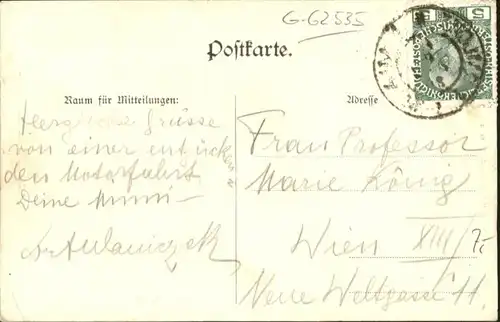 G-62535
Postkarte.
Raum für Mitteilungen:
Adresse
Herzliche Grüsse
von einer entzücken
den Motorfahrt
Deine Mimi
Frau Professor
Marie König
Wien XIII/7.
Neue Weltgasse 11.
5 5